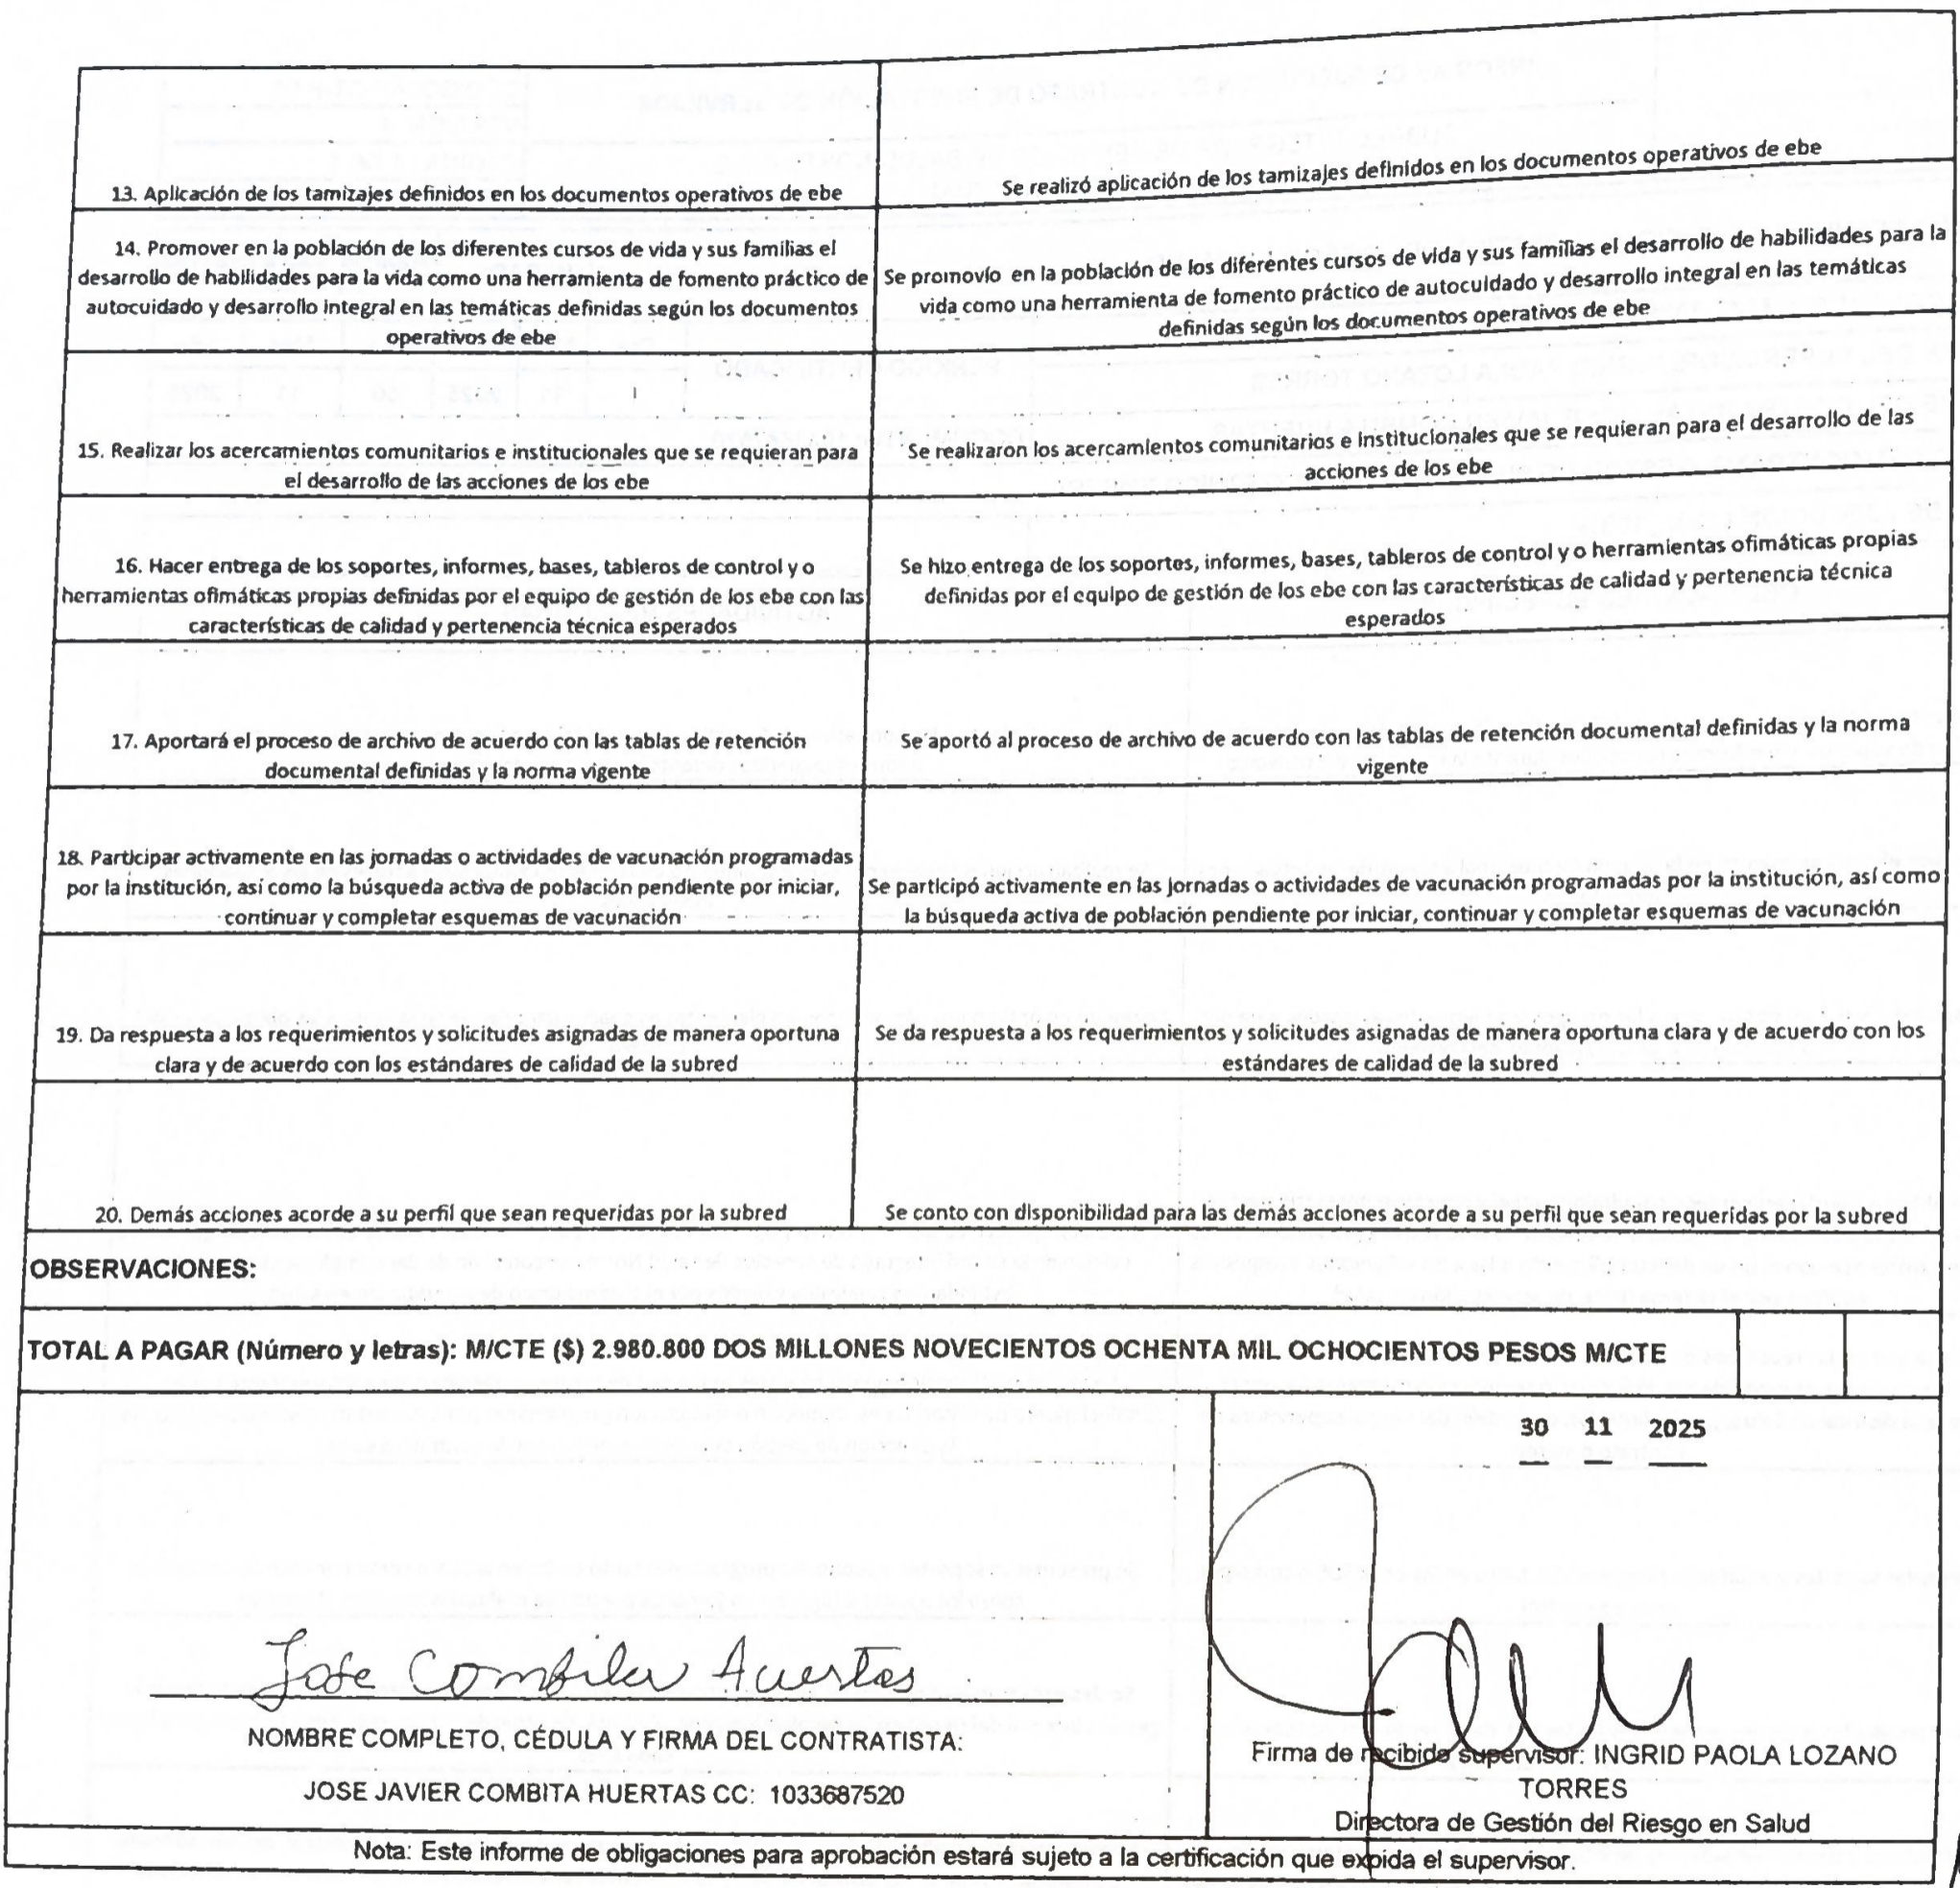 13. Aplicación de los tamizajes definidos en los documentos operativos de ebe
Se realizó aplicación de los tamizajes definidos en los documentos operativos de ebe
14. Promover en la población de los diferentes cursos de vida y sus familias el
desarrollo de habilidades para la vida como una herramienta de fomento práctico de
autocuidado y desarrollo integral en las temáticas definidas según los documentos
operativos de ebe
Se promovío en la población de los diferentes cursos de vida y sus familias el desarrollo de habilidades para la
vida como una herramienta de fomento práctico de autocuidado y desarrollo integral en las temáticas
definidas según los documentos operativos de ebe
15. Realizar los acercamientos comunitarios e institucionales que se requieran para
el desarrollo de las acciones de los ebe
Se realizaron los acercamientos comunitarios e institucionales que se requieran para el desarrollo de las
acciones de los ebe
16. Hacer entrega de los soportes, informes, bases, tableros de control y o
herramientas ofimáticas propias definidas por el equipo de gestión de los ebe con las
características de calidad y pertenencia técnica esperados
Se hizo entrega de los soportes, informes, bases, tableros de control y o herramientas ofimáticas propias
definidas por el equipo de gestión de los ebe con las características de calidad y pertenencia técnica
esperados
17. Aportará el proceso de archivo de acuerdo con las tablas de retención
documental definidas y la norma vigente
Se aportó al proceso de archivo de acuerdo con las tablas de retención documental definidas y la norma
vigente
18. Participar activamente en las jornadas o actividades de vacunación programadas
por la institución, así como la búsqueda activa de población pendiente por iniciar,
continuar y completar esquemas de vacunación
Se participó activamente en las jornadas o actividades de vacunación programadas por la institución, así como
la búsqueda activa de población pendiente por iniciar, continuar y completar esquemas de vacunación
19. Da respuesta a los requerimientos y solicitudes asignadas de manera oportuna
clara y de acuerdo con los estándares de calidad de la subred
Se da respuesta a los requerimientos y solicitudes asignadas de manera oportuna clara y de acuerdo con los
estándares de calidad de la subred
20. Demás acciones acorde a su perfil que sean requeridas por la subred
Se conto con disponibilidad para las demás acciones acorde a su perfil que sean requeridas por la subred
OBSERVACIONES:
TOTAL A PAGAR (Número y letras): M/CTE ($) 2.980.800 DOS MILLONES NOVECIENTOS OCHENTA MIL OCHOCIENTOS PESOS M/CTE
30 11 2025
Jose Combita Huertas
NOMBRE COMPLETO, CÉDULA Y FIRMA DEL CONTRATISTA:
JOSE JAVIER COMBITA HUERTAS CC: 1033687520
Firma de recibido supervisor: INGRID PAOLA LOZANO
TORRES
Directora de Gestión del Riesgo en Salud
Nota: Este informe de obligaciones para aprobación estará sujeto a la certificación que expida el supervisor.